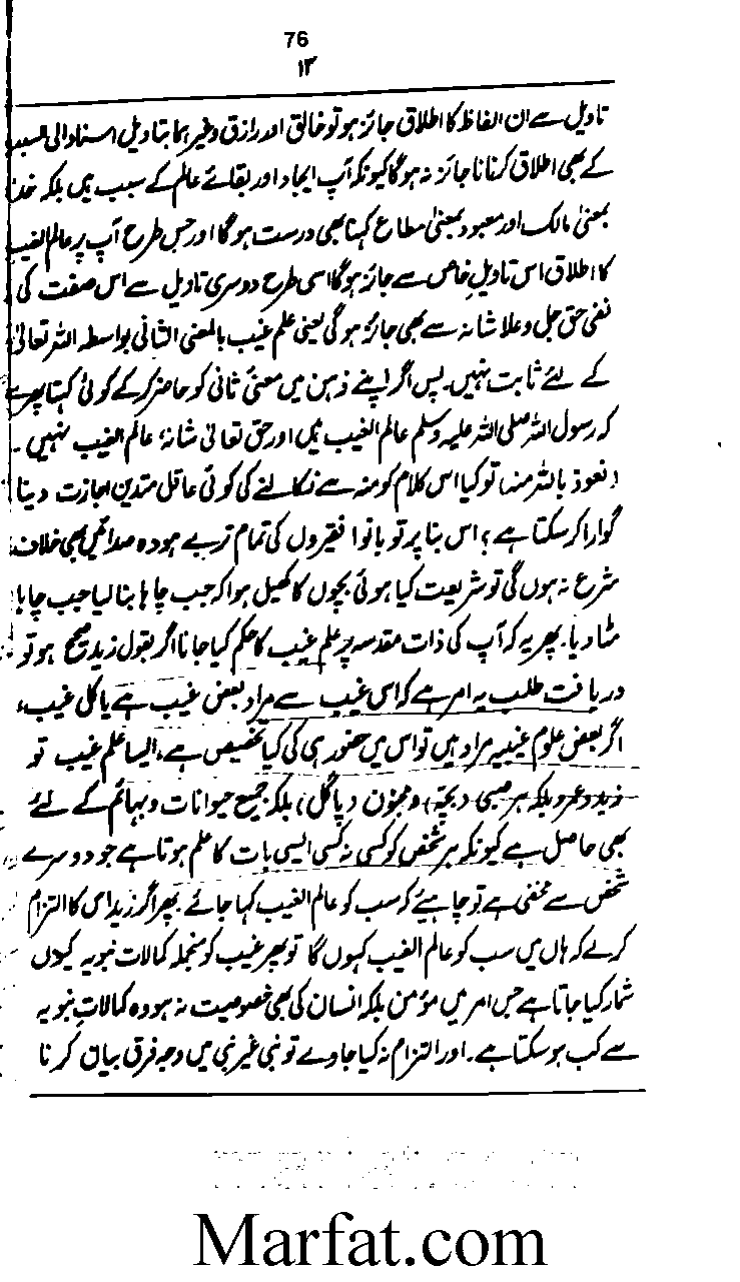 76
۱۳
تاویل سے ان الفاظ کا اطلاق جائز ہو تو خالق اور رازق وغیرہما بتاویل اسناد الی السبب
کے بھی اطلاق کرنا ناجائز نہ ہوگا کیونکہ آپ ایجاد اور بقائے عالم کے سبب ہیں بلکہ خدا
بمعنیٰ مالک اور معبود بمعنیٰ مطاع کہنا بھی درست ہوگا اور جس طرح آپ پر عالم الغیب
کا اطلاق اس تاویل خاص سے جائز ہوگا اسی طرح دوسری تاویل سے اس صفت کی
نفی حق جل و علا شانہ سے بھی جائز ہوگی یعنی علم غیب بالمعنی الثانی بواسطہ اللہ تعالیٰ
کے لئے ثابت نہیں۔ پس اگر اپنے ذہن میں معنیٔ ثانی کو حاضر کرکے کوئی کہتا پھرے
کہ رسول اللہ صلی اللہ علیہ وسلم عالم الغیب ہیں اور حق تعالیٰ شانہ، عالم الغیب نہیں۔
(نعوذ باللہ منہ) تو کیا اس کلام کو منہ سے نکالنے کی کوئی عاقل متدین اجازت دینا
گوارا کر سکتا ہے؟ اس بنا پر تو بانوا فقیروں کی تمام تر بے ہودہ صدائیں بھی خلاف
شرع نہ ہوں گی تو شریعت کیا ہوئی بچوں کا کھیل ہوا کہ جب چاہا بنا لیا جب چاہا
مٹا دیا۔ پھر یہ کہ آپ کی ذات مقدسہ پر علم غیب کا حکم کیا جانا اگر بقول زید صحیح ہو تو
دریافت طلب یہ امر ہے کہ اس غیب سے مراد بعض غیب ہے یا کل غیب،
اگر بعض علوم غیبیہ مراد ہیں تو اس میں حضور ہی کی کیا تخصیص ہے، ایسا علم غیب تو
زید و عمرو بلکہ ہر صبی (بچہ) و مجنون (پاگل) بلکہ جمیع حیوانات و بہائم کے لئے
بھی حاصل ہے کیونکہ ہر شخص کو کسی نہ کسی ایسی بات کا علم ہوتا ہے جو دوسرے
شخص سے مخفی ہے تو چاہیئے کہ سب کو عالم الغیب کہا جائے۔ پھر اگر زید اس کا التزام
کرلے کہ ہاں میں سب کو عالم الغیب کہوں گا تو پھر غیب کو منجملہ کمالات نبویہ کیوں
شمار کیا جاتا ہے جس امر میں مؤمن بلکہ انسان کی بھی خصوصیت نہ ہو وہ کمالاتِ نبویہ
سے کب ہو سکتا ہے۔ اور التزام نہ کیا جاوے تو نبی غیر نبی میں وجہ فرق بیان کرنا
Marfat.com